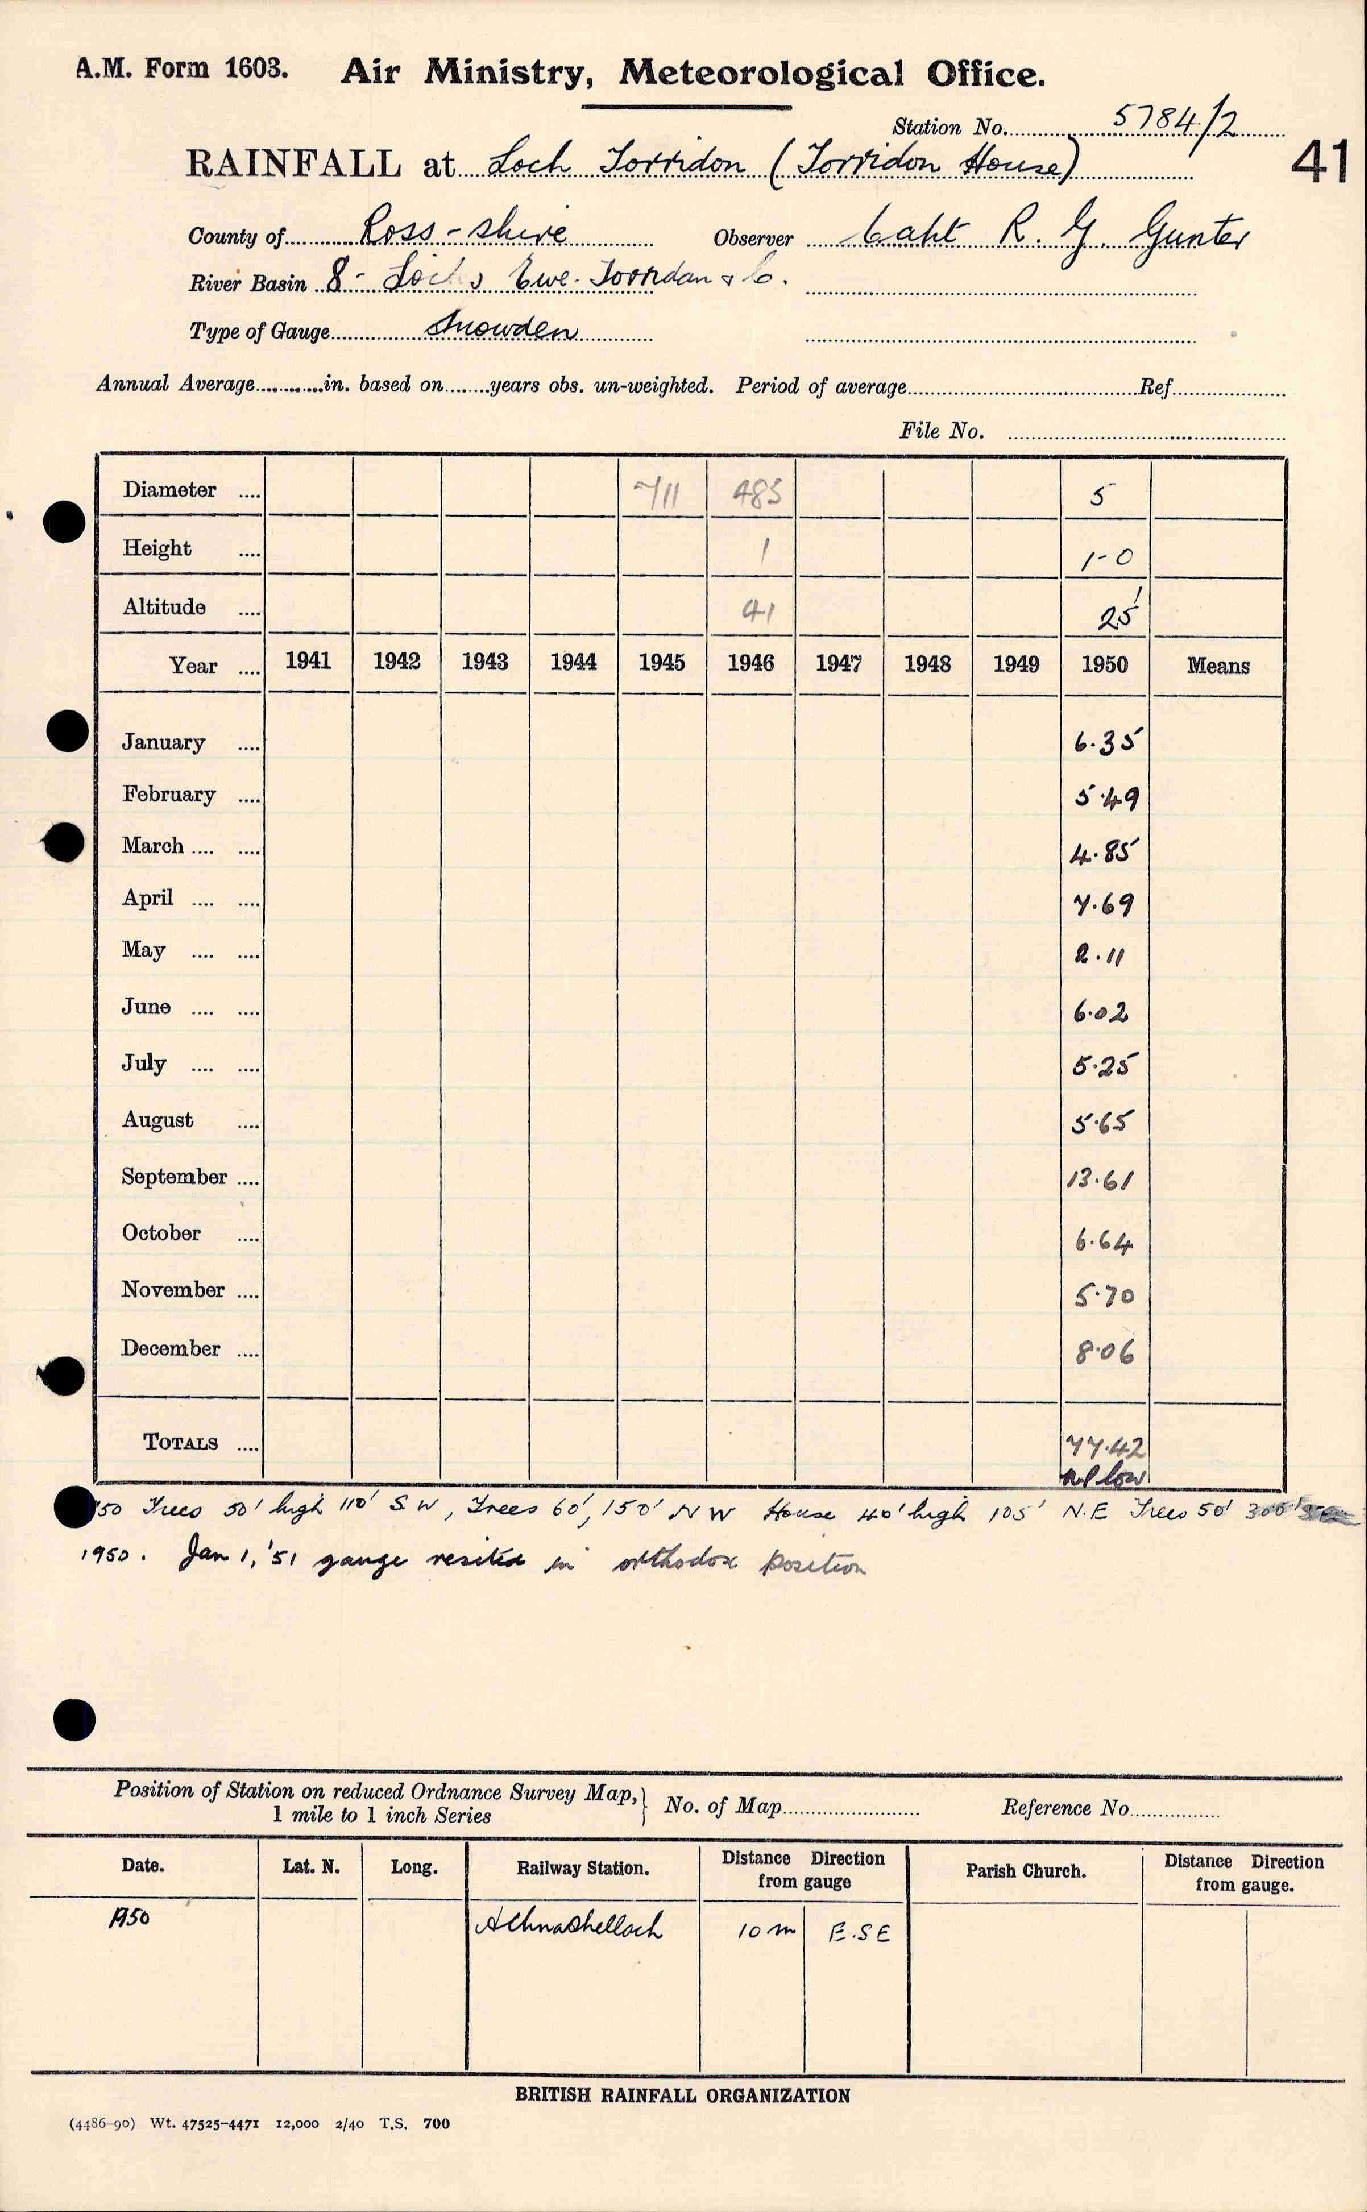 A.M. Form 1603. Air Ministry, Meteorological Office.
Station No. 5784/2
RAINFALL at Loch Torridon (Torridon House) 41
County of Ross-shire Observer Capt R. G. Gunter
River Basin 8 - Lochs Ewe. Torridan & C.
Type of Gauge Snowden
Annual Average in. based on years obs. un-weighted. Period of average Ref
File No.
Diameter 711 485 5
Height 1 1-0
Altitude 41 25'
Year 1941 1942 1943 1944 1945 1946 1947 1948 1949 1950 Means
January 6.35
February 5.49
March 4.85
April 7.69
May 2.11
June 6.02
July 5.25
August 5.65
September 13.61
October 6.64
November 5.70
December 8.06
TOTALS 77.42
low
50 Trees 50' high 110' SW, Trees 60', 150' NW House 40' high 105' N.E Trees 50' 300'
1950. Jan 1, '51 gauge resited in orthodox position
Position of Station on reduced Ordnance Survey Map, 1 mile to 1 inch Series } No. of Map Reference No.
Date. Lat. N. Long. Railway Station. Distance Direction from gauge Parish Church. Distance Direction from gauge.
1950 Achnashellach 10 m E.SE
BRITISH RAINFALL ORGANIZATION
(4486-90) Wt. 47525-4471 12,000 2/40 T.S. 700